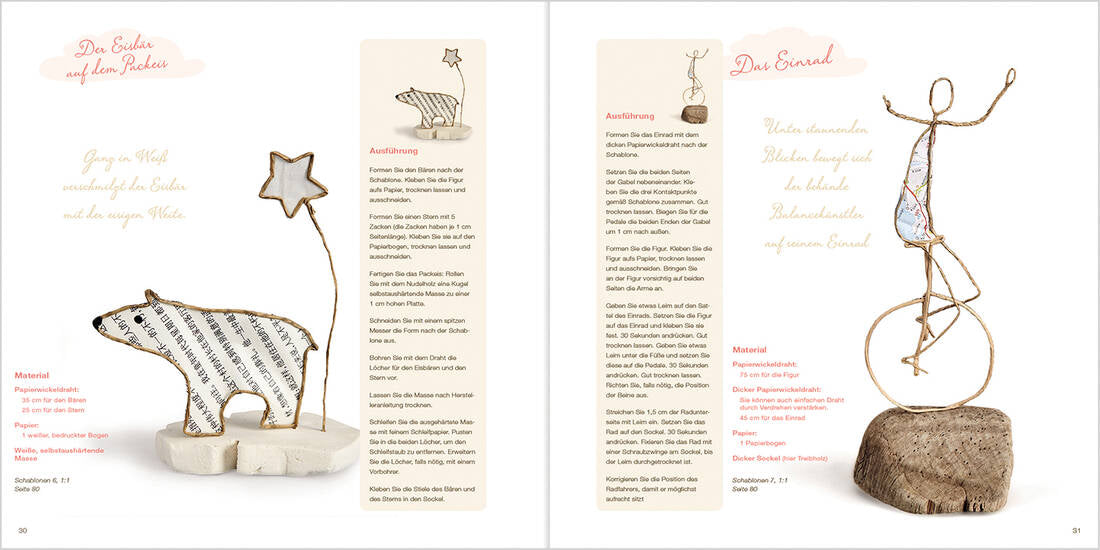 Der Eisbär
auf dem Packeis
Ganz in Weiß
verschmilzt der Eisbär
mit der eisigen Weite.
Material
Papierwickeldraht:
35 cm für den Bären
25 cm für den Stern
Papier:
1 weißer, bedruckter Bogen
Weiße, selbstaushärtende
Masse
Schablonen 6, 1:1
Seite 80
30
Ausführung
Formen Sie den Bären nach der
Schablone. Kleben Sie die Figur
aufs Papier, trocknen lassen und
ausschneiden.
Formen Sie einen Stern mit 5
Zacken (die Zacken haben je 1 cm
Seitenlänge). Kleben Sie sie auf den
Papierbogen, trocknen lassen und
ausschneiden.
Fertigen Sie das Packeis: Rollen
Sie mit dem Nudelholz eine Kugel
selbstaushärtende Masse zu einer
1 cm hohen Platte.
Schneiden Sie mit einem spitzen
Messer die Form nach der Schab-
lone aus.
Bohren Sie mit dem Draht die
Löcher für den Eisbären und den
Stern vor.
Lassen Sie die Masse nach Herstel-
leranleitung trocknen.
Schleifen Sie die ausgehärtete Mas-
se mit feinem Schleifpapier. Pusten
Sie in die beiden Löcher, um den
Schleifstaub zu entfernen. Erweitern
Sie die Löcher, falls nötig, mit einem
Vorbohrer.
Kleben Sie die Stiele des Bären und
des Sterns in den Sockel.
Ausführung
Formen Sie das Einrad mit dem
dicken Papierwickeldraht nach der
Schablone.
Setzen Sie die beiden Seiten
der Gabel nebeneinander. Kle-
ben Sie die drei Kontaktpunkte
gemäß Schablone zusammen. Gut
trocknen lassen. Biegen Sie für die
Pedale die beiden Enden der Gabel
um 1 cm nach außen.
Formen Sie die Figur. Kleben Sie die
Figur aufs Papier, trocknen lassen
und ausschneiden. Bringen Sie
an der Figur vorsichtig auf beiden
Seiten die Arme an.
Geben Sie etwas Leim auf den Sat-
tel des Einrads. Setzen Sie die Figur
auf das Einrad und kleben Sie sie
fest. 30 Sekunden andrücken. Gut
trocknen lassen. Geben Sie etwas
Leim unter die Füße und setzen Sie
diese auf die Pedale. 30 Sekunden
andrücken. Gut trocknen lassen.
Richten Sie, falls nötig, die Position
der Beine aus.
Streichen Sie 1,5 cm der Radunter-
seite mit Leim ein. Setzen Sie das
Rad auf den Sockel. 30 Sekunden
andrücken. Fixieren Sie das Rad mit
einer Schraubzwinge am Sockel, bis
der Leim durchgetrocknet ist.
Korrigieren Sie die Position des
Radfahrers, damit er möglichst
aufrecht sitzt
Das Einrad
Unter staunenden
Blicken bewegt sich
der behände
Balancekünstler
auf seinem Einrad
Material
Papierwickeldraht:
75 cm für die Figur
Dicker Papierwickeldraht:
Sie können auch einfachen Draht
durch Verdrehen verstärken.
45 cm für das Einrad
Papier:
1 Papierbogen
Dicker Sockel (hier Treibholz)
Schablonen 7, 1:1
Seite 80
S1